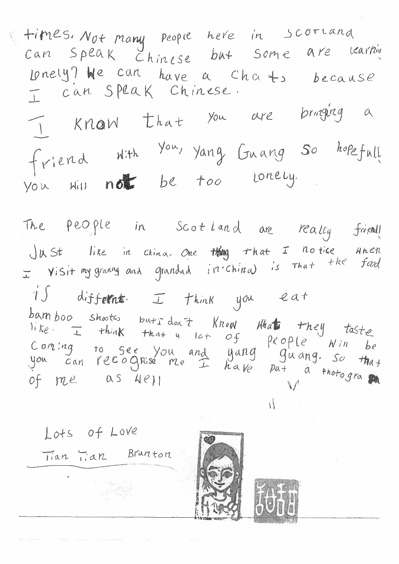 times. Not many people here in Scotland
can speak Chinese but some are learnin
lonely? We can have a chats because
I can speak Chinese.
I know that you are bringing a
friend with you, yang Guang so hopefull
you will not be too lonely.
The people in Scotland are really friendl
Just like in china. One thing that I notice when
I visit my granny and grandad in China is that the food
is different. I think you eat
bamboo shoots but I don't know what they taste
like. I think that a lot of people will be
coming to see you and yang guang. So that
you can recognise me I have put a photogra
of me as well
Lots of Love
Tian Tian Branton
甜甜